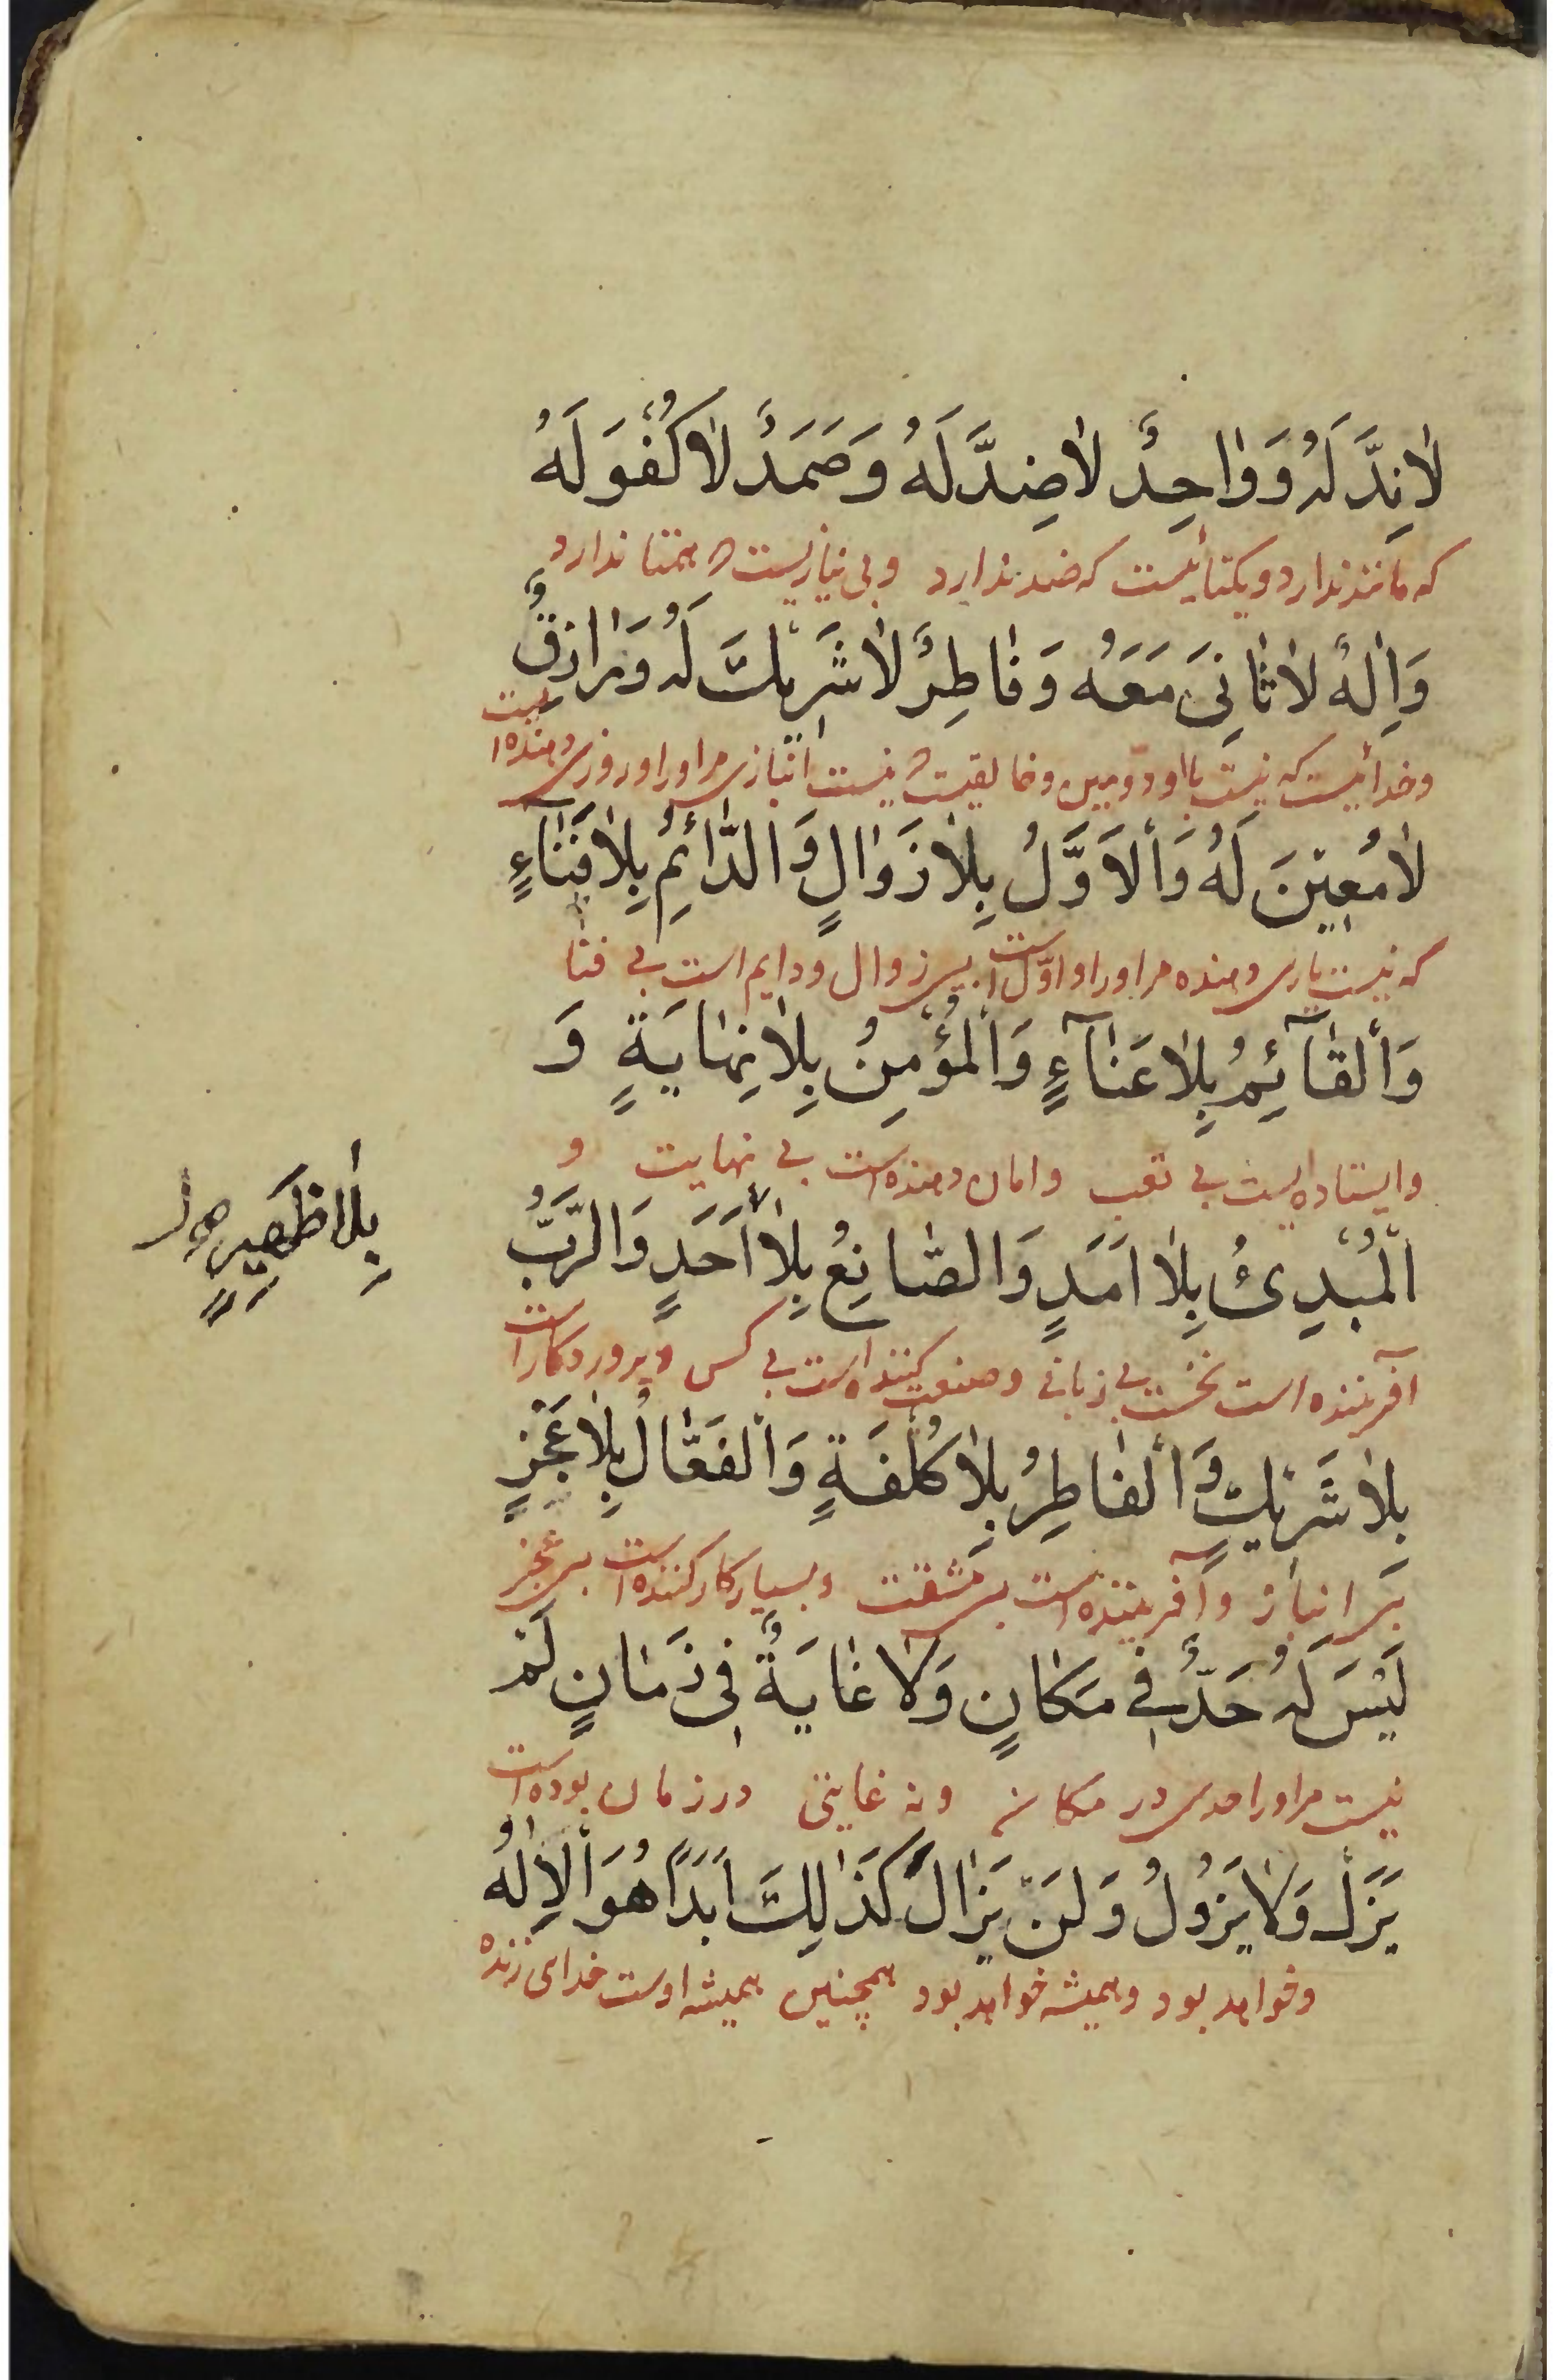 لٰانِدَّ لَهُ وَ وٰاحِدٌ لٰاضِدَّ لَهُ وَ صَمَدٌ لٰا كُفُوَ لَهُ
که مانند ندارد و یکتائیست که ضد ندارد و بی نیازیست که همتا ندارد
وَ اِلٰهٌ لٰا ثٰانِیَ مَعَهُ وَ فٰاطِرٌ لٰا شَرِیكَ لَهُ وَ رٰازِقٌ
و خدائیست که نیست با او دومین و خالقیست که نیست انبازی مر او را و روزی دهنده است
لٰا مُعِیْنَ لَهُ وَ اْلاَوَّلُ بِلٰا زَوٰالٍ وَ الدّٰائِمُ بِلٰا فَنٰآءٍ
که نیست یاری دهنده مر او را و اوّل است بی زوال و دایم است بی فنا
وَ اْلقٰآئِمُ بِلٰا عَنٰآءٍ وَ اْلمُؤْمِنُ بِلٰا نِهٰایَةٍ وَ
و ایستاده است بی تعب و امان دهنده است بی نهایت و
اْلمُبْدِئُ بِلٰا اَمَدٍ وَ الصّٰانِعُ بِلٰا اَحَدٍ وَ الرَّبُّ
بِلٰا ظَهِیرٍ
آفریننده است نخست بی زمانی و صنعت کننده است بی کس و پروردکار است
بِلٰا شَرِیْكٍ وَ اْلفٰاطِرُ بِلٰا كُلْفَةٍ وَ اْلفَعّٰالُ بِلٰا عَجْزٍ
بی انباز و آفریننده است بی مشقت و بسیار کار کننده است بی عجز
لَیْسَ لَهُ حَدٌّ فِی مَكٰانٍ وَ لٰا غٰایَةٌ فِی زَمٰانٍ لَمْ
نیست مر او را حدی در مکانی و نه غایتی در زمان بوده است
یَزَلْ وَ لٰا یَزُولُ وَ لَنْ یَزٰالَ كَذٰلِكَ اَبَدًا هُوَ اْلاِلٰهُ
و خواهد بود و همیشه خواهد بود همچنین همیشه اوست خدای زنده